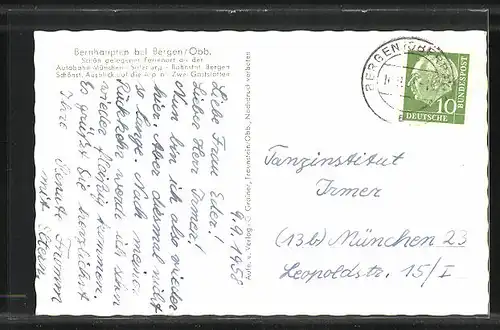 Bernhaupten bei Bergen/Obb.
Schön gelegener Ferienort an der
Autobahn München - Salzburg - Bahnstat. Bergen
Schönst. Ausblick auf die Alpen. Zwei Gaststätten
9.9.1958
Liebe Frau Eder!
Lieber Herr Irmer!
Nun bin ich also wieder
hier. Aber diesmal nicht
so lange. Nach meiner
Rückkehr werde ich dann
wieder fleißig kommen.
Es grüßt Sie herzlichst
Ihre Renate
mit Eltern
Aufn. u. Verlag: G. Greiner, Nachdruck verboten
BERGEN (OBERBAY)
DEUTSCHE
BUNDESPOST
10
Tanzinstitut
Irmer
(13b) München 23
Leopoldstr. 15/I